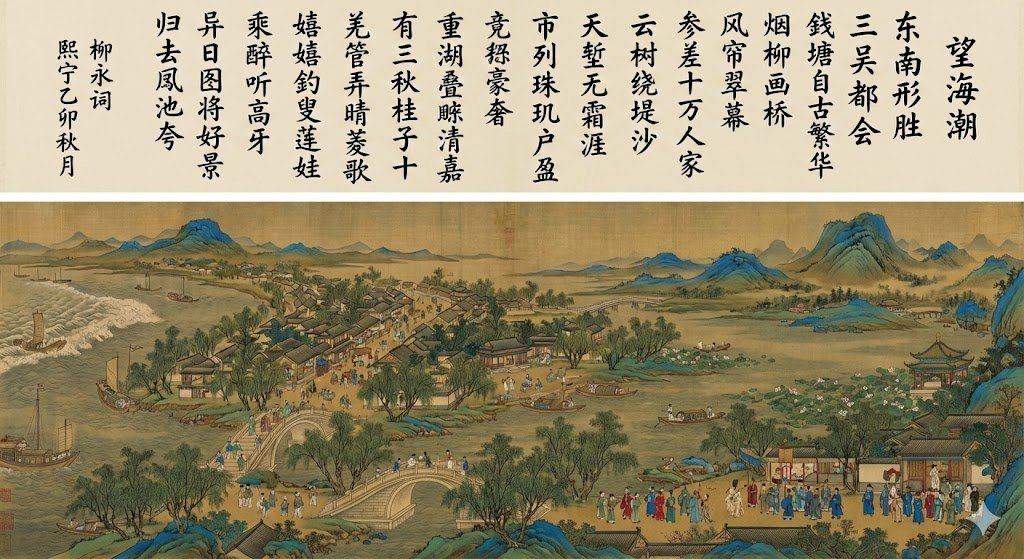 望海潮
东南形胜
三吴都会
錢塘自古繁华
烟柳画桥
风帘翠幕
参差十万人家
云树绕堤沙
天堑无霜涯
市列珠玑户盈
竞豪奢
重湖叠清嘉
有三秋桂子十
羌管弄晴菱歌
嬉嬉釣叟莲娃
乘醉听高牙
异日图将好景
归去鳳池夸
柳永词
熙宁乙卯秋月